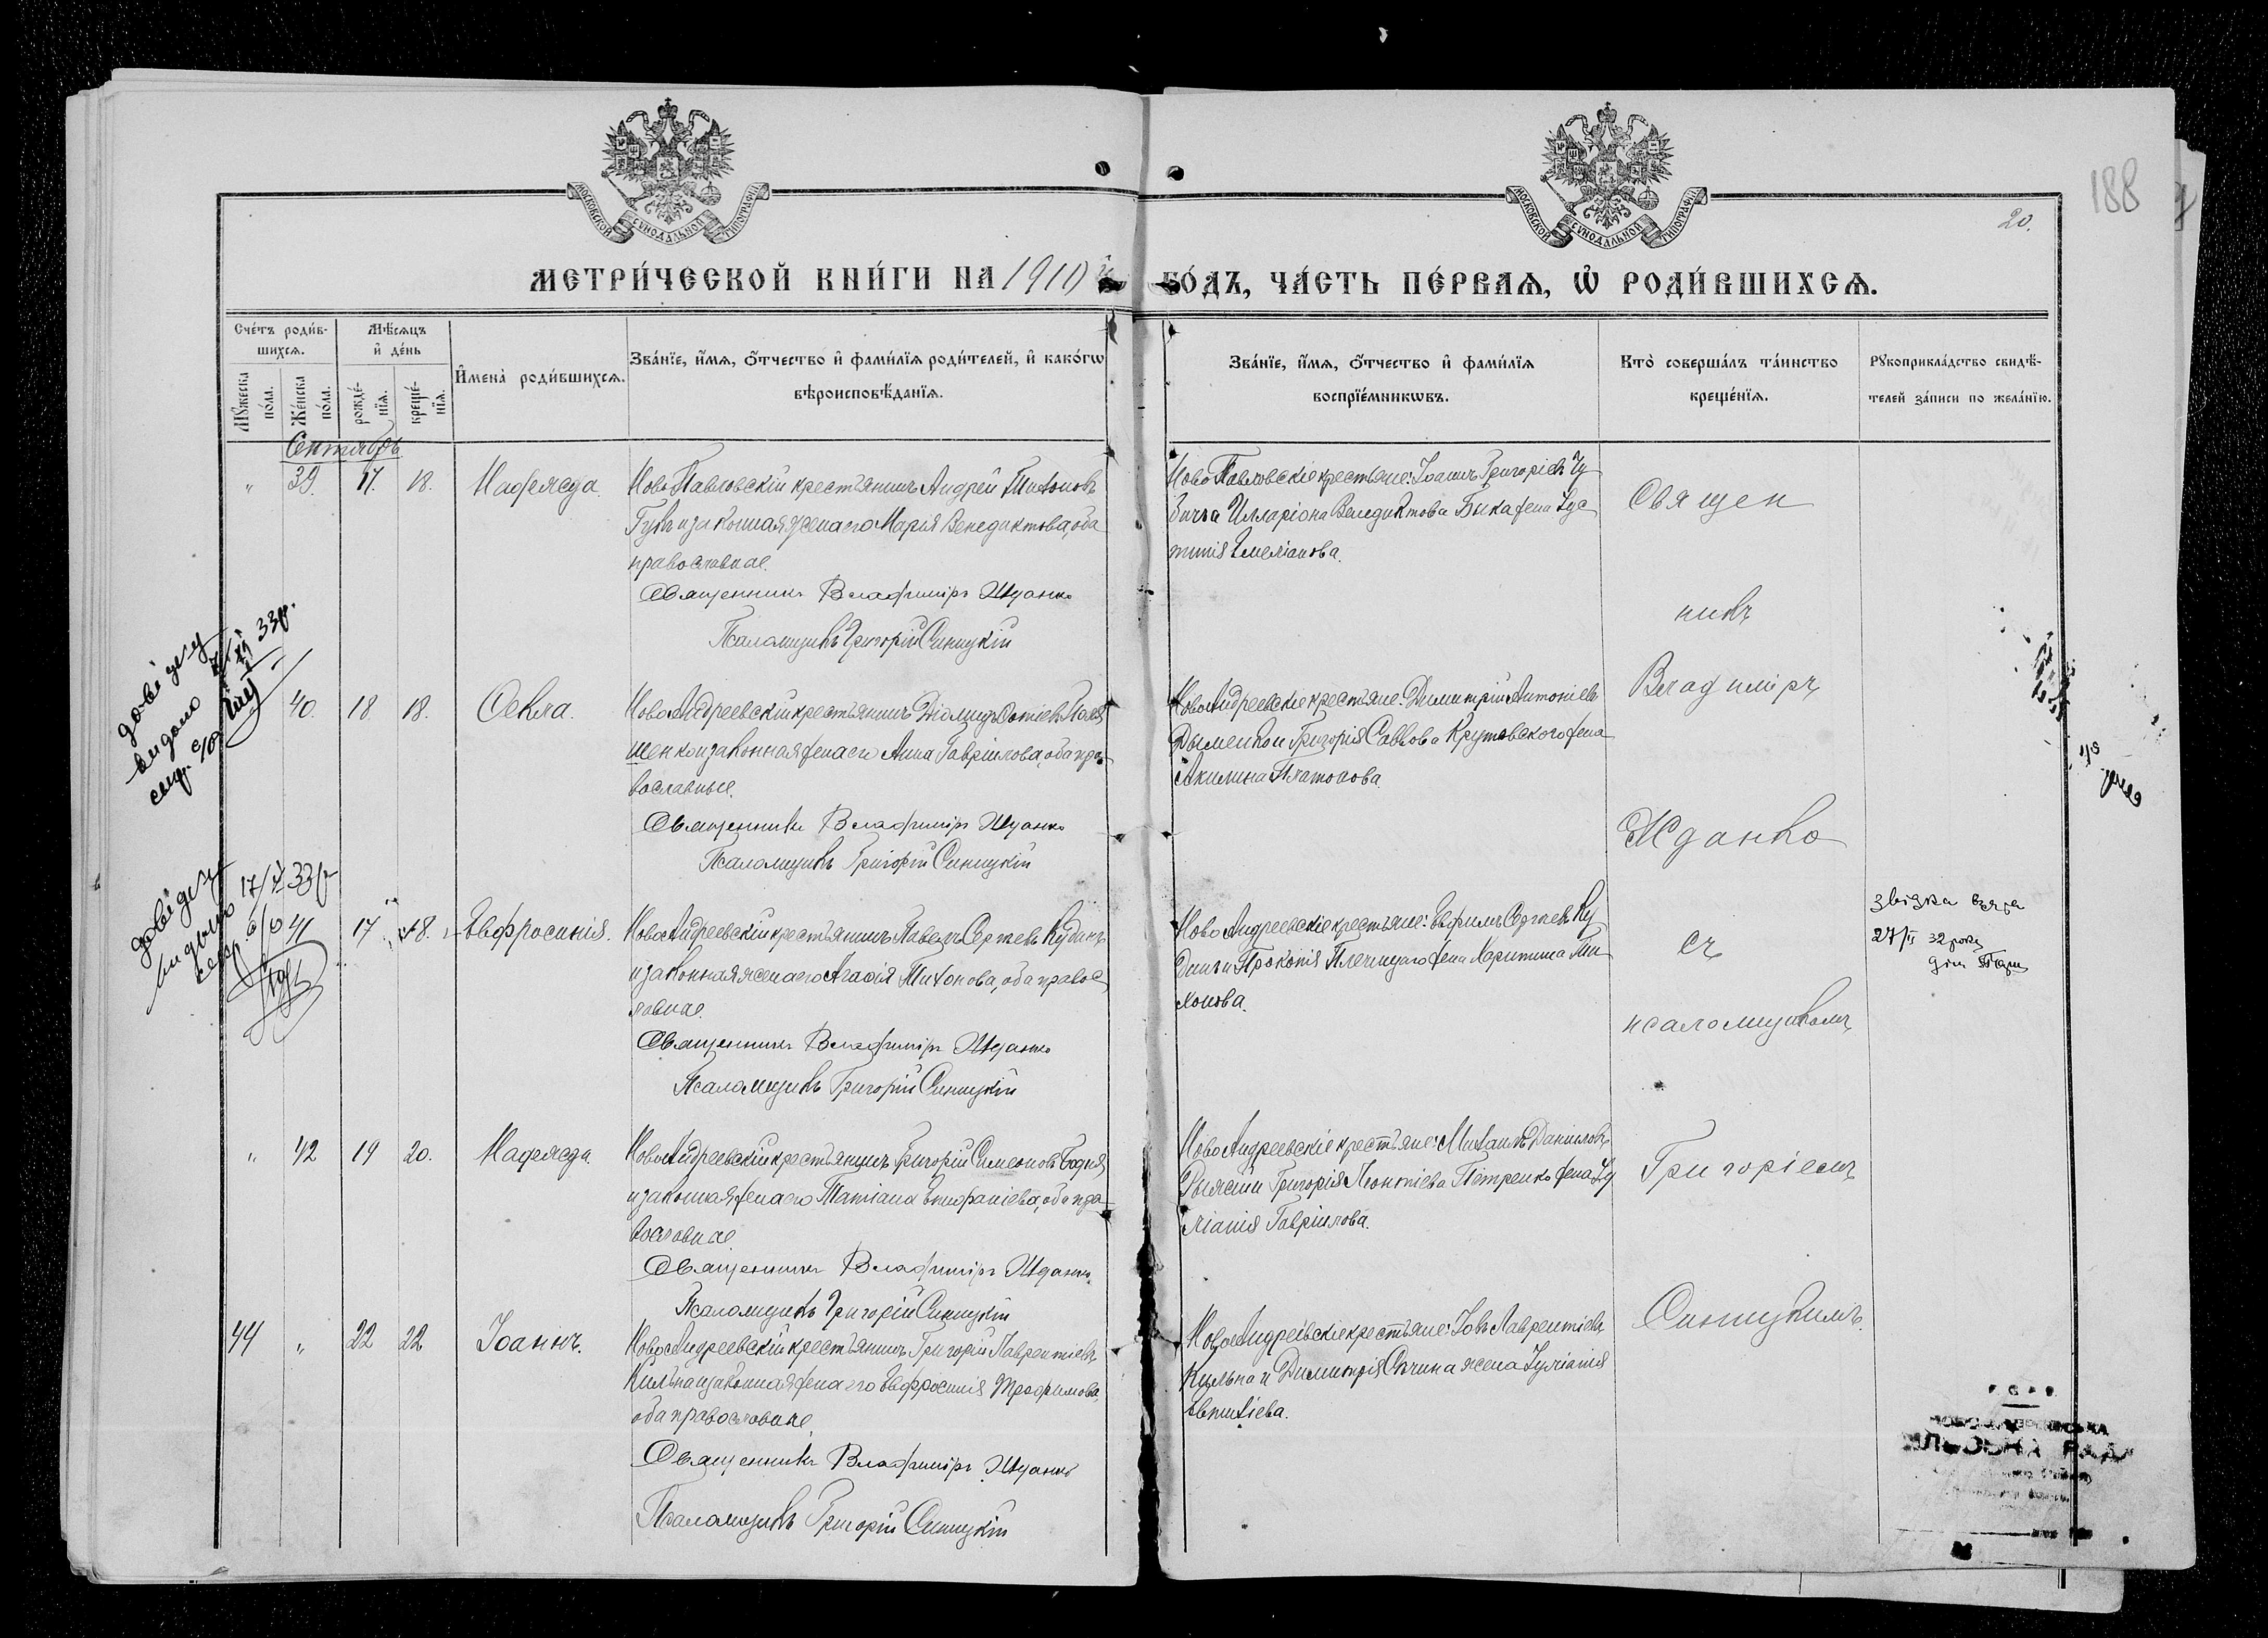 МОСКОВСКОЙ СѴНОДАЛЬНОЙ ТИПОГРАФІИ
МОСКОВСКОЙ СѴНОДАЛЬНОЙ ТИПОГРАФІИ
188
20.
МЕТРИ́ЧЕСКОЙ КНИ́ГИ НА 1910 й
ГО́ДЪ, ЧА́СТЬ ПЕ́РВАѦ, Ѽ РОДИ́ВШИХСѦ.
Сче́тъ роди́в-
шихсѧ.
Мꙋ́жеска по́ла.
Же́нска по́ла.
Мѣ́сѧцъ
и҆ де́нь
рожде́-
нїѧ.
креще́-
нїѧ.
И҆мена̀ роди́вшихсѧ.
Зва́нїе, и҆́мѧ, ѻ҆́тчество и҆ фами́лїѧ роди́телей, и҆ како́гѡ
вѣроисповѣ́данїѧ.
Зва́нїе, и҆́мѧ, ѻ҆́тчество и҆ фами́лїѧ
воспрїе́мникѡвъ.
Кто̀ соверша́лъ та́инство
креще́нїѧ.
Рꙋкоприкла́дство свидѣ́-
телей за́писи по жела́нїю.
Сентябрь
" 39. 17. 18. Надежда.
Ново Павловскій крестьянинъ Андрей Тихоновъ
Гунь и законная жена его Марія Венедиктова, оба
православные.
Священникъ Владиміръ Жданко
Псаломщикъ Григорій Синицкій
Ново Павловскіе крестьяне: Іоаннъ Григоріевъ
Илларіона Венедиктова Быка жена Іус
тинія Емеліанова.
40. 18. 18. Ѳекла.
Ново Андреевскій крестьянинъ
шенко и законная жена его Анна Гавріилова, оба пра-
вославные.
Священникъ Владиміръ Жданко
Псаломщикъ Григорій Синицкій
Ново Андреевскіе крестьяне: Димитрій Антоніевъ
Дыменко и Григорія Саввова Крутовского жена
Акилина Платонова.
довідку
видано
33р.
41 17 18. Евфросинія.
Ново Андреевскій крестьянинъ Павелъ Сергіевъ Куданъ
и законная жена его Агафія Тихонова, оба правос
лавные.
Священникъ Владиміръ Жданко
Псаломщикъ Григорій Синицкій
Ново Андреевскіе крестьяне: Евфимъ Сергіевъ Ку
данъ и Прокопія жена Харитина Ти
хонова.
довідку
видано 17/V 33р
27/II 32 року
" 42 19 20. Надежда.
Ново Андреевскій крестьянинъ Григорій Симеоновъ Бодня
и законная жена его Татіана Епифаніева, оба пра-
вославные
Священникъ Владиміръ Жданко.
Псаломщикъ Григорій Синицкій
Ново Андреевскіе крестьяне: Михаилъ Даниловъ
Григорія Леонтіева Петренко жена Іу
ліанія Гавріилова.
44 " 22 22 Іоаннъ.
Ново Андреевскій крестьянинъ Григорій Лаврентіевъ
и законная жена его Евфросинія Трофимова,
оба православные.
Священникъ Владиміръ Жданко
Псаломщикъ Григорій Синицкій
Ново Андреевскіе крестьяне: Іовъ Лаврентіевъ
и Димитрія жена Іуліанія
Евтихіева.
Священ
никъ
Владиміръ
Жданко
съ
псаломщикомъ
Григоріемъ
Синицкимъ.
РАДА